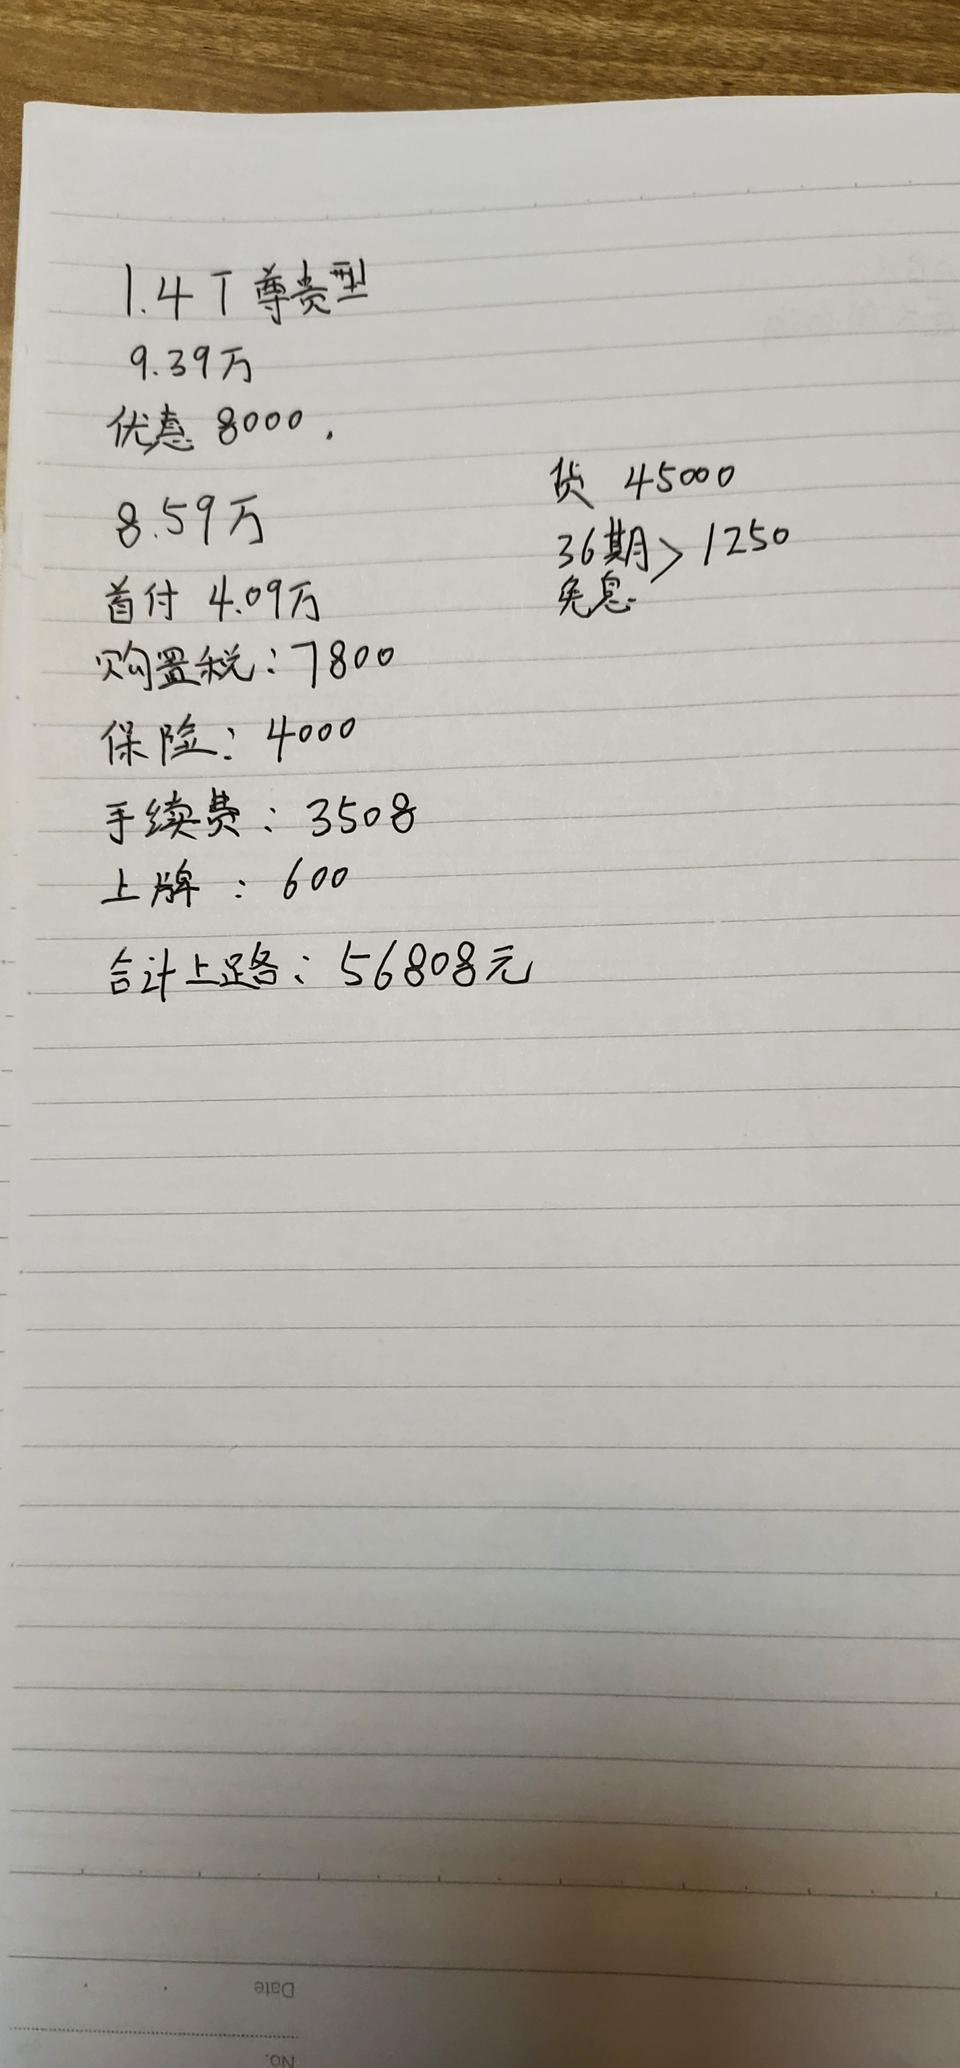 1.4T 尊贵型
9.39万
优惠 8000.
8.59万
首付 4.09万
购置税:7800
保险:4000
手续费:3508
上牌:600
合计上路:56808元
贷 45000
36期>1250
免息.
Date
No.